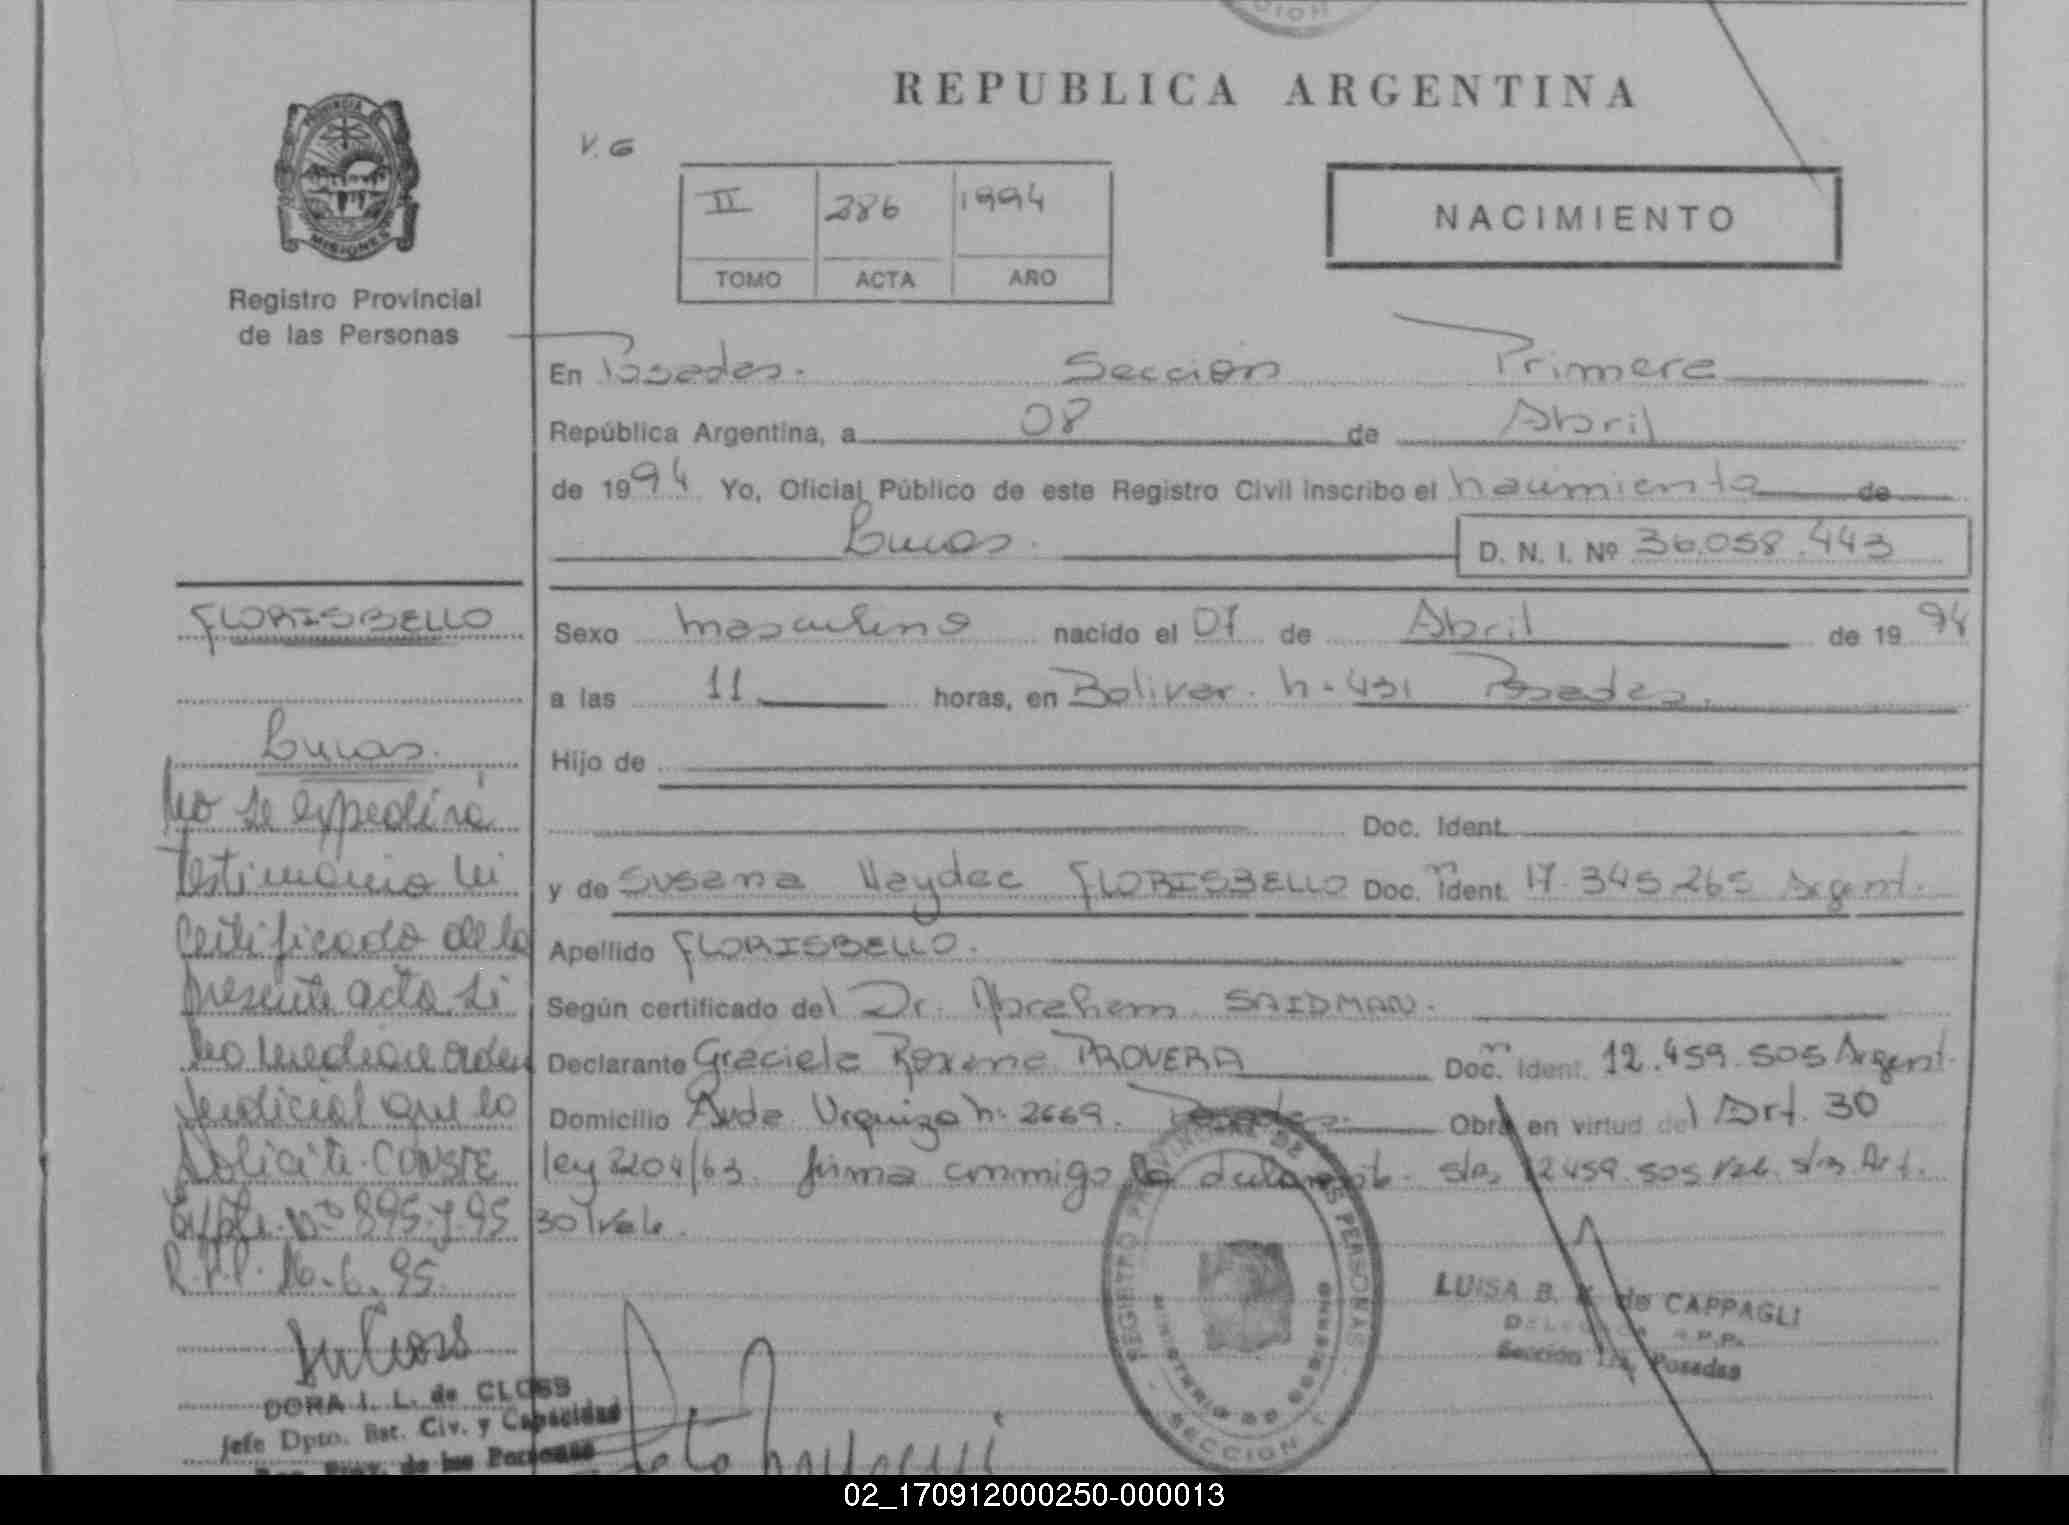 REPUBLICA ARGENTINA
PROVINCIA DE
MISIONES
Registro Provincial
de las Personas
V. G
II 286 1994
TOMO ACTA AÑO
NACIMIENTO
En Posadas. Sección Primera
República Argentina, a 08 de Abril
de 1994 Yo, Oficial Público de este Registro Civil inscribo el nacimiento de
Lucas.
D. N. I. Nº 36.058.443
Sexo masculino nacido el 07 de Abril de 1994
a las 11 horas, en Bolivar. n- 431 Posadas.
Hijo de
Doc. Ident.
y de Susana Haydee FLORISBELLO Doc. Ident. 17.345.265 Argent.
Apellido FLORISBELLO.
Según certificado del Dr. Abraham SAIDMAN.
Declarante Graciela Roxana PROVERA Doc. Ident. 12.459.505 Argent.
Domicilio Avda Urquiza n- 2669. Posadas. Obra en virtud del Art. 30
ley 2204/63. firma conmigo la 12.459.505 vale. s/r Art.
30 vale.
FLORISBELLO
Lucas.
No se expedirá
testimonio ni
certificado de la
presente acta si
no mediare orden
Judicial que lo
solicite. CONSTE
Expte. nº 895-J-95
R.P.P. 16.6.95.
DORA I. L. de CLOSS
Jefe Dpto. Est. Civ. y Capacidad
Reg. Prov. de las Personas
REGISTRO PROVINCIAL DE LAS PERSONAS
MINISTERIO DE GOBIERNO
SECCION 1
LUISA B. de CAPPAGLI
R.P.P.
Sección 1ra. Posadas
02_170912000250-000013